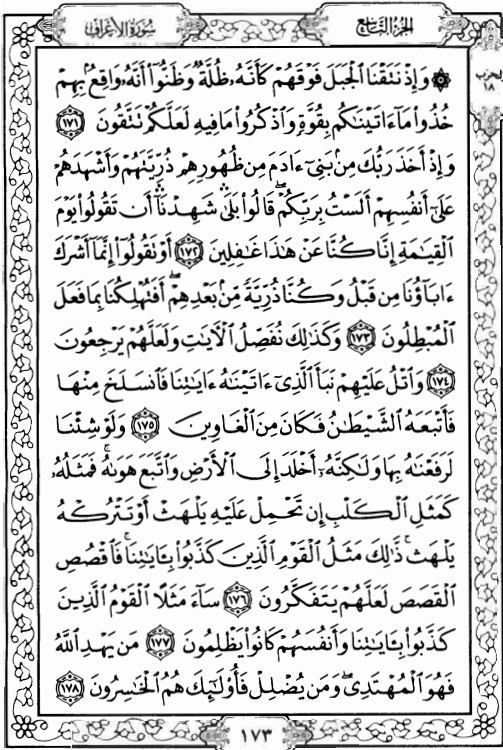 سُورَةُ الأَعْرَافِ
الجُزْءُ التَّاسِعُ
الحزب
١٨
۞ وَإِذْ نَتَقْنَا الْجَبَلَ فَوْقَهُمْ كَأَنَّهُ ظُلَّةٌ وَظَنُّوا أَنَّهُ وَاقِعٌ بِهِمْ
خُذُوا مَا ءَاتَيْنَاكُم بِقُوَّةٍ وَاذْكُرُوا مَا فِيهِ لَعَلَّكُمْ تَتَّقُونَ ١٧١
وَإِذْ أَخَذَ رَبُّكَ مِنۢ بَنِي ءَادَمَ مِن ظُهُورِهِمْ ذُرِّيَّتَهُمْ وَأَشْهَدَهُمْ
عَلَىٰ أَنفُسِهِمْ أَلَسْتُ بِرَبِّكُمْ ۖ قَالُوا بَلَىٰ ۛ شَهِدْنَا ۛ أَن تَقُولُوا يَوْمَ
الْقِيَٰمَةِ إِنَّا كُنَّا عَنْ هَٰذَا غَٰفِلِينَ ١٧٢ أَوْ تَقُولُوا إِنَّمَا أَشْرَكَ
ءَابَاؤُنَا مِن قَبْلُ وَكُنَّا ذُرِّيَّةً مِّنۢ بَعْدِهِمْ ۖ أَفَتُهْلِكُنَا بِمَا فَعَلَ
الْمُبْطِلُونَ ١٧٣ وَكَذَٰلِكَ نُفَصِّلُ الْآيَٰتِ وَلَعَلَّهُمْ يَرْجِعُونَ
١٧٤ وَاتْلُ عَلَيْهِمْ نَبَأَ الَّذِي ءَاتَيْنَٰهُ ءَايَٰتِنَا فَانسَلَخَ مِنْهَا
فَأَتْبَعَهُ الشَّيْطَٰنُ فَكَانَ مِنَ الْغَاوِينَ ١٧٥ وَلَوْ شِئْنَا
لَرَفَعْنَٰهُ بِهَا وَلَٰكِنَّهُ أَخْلَدَ إِلَى الْأَرْضِ وَاتَّبَعَ هَوَىٰهُ ۚ فَمَثَلُهُ
كَمَثَلِ الْكَلْبِ إِن تَحْمِلْ عَلَيْهِ يَلْهَثْ أَوْ تَتْرُكْهُ
يَلْهَث ۚ ذَّٰلِكَ مَثَلُ الْقَوْمِ الَّذِينَ كَذَّبُوا بِـَٔايَٰتِنَا ۚ فَاقْصُصِ
الْقَصَصَ لَعَلَّهُمْ يَتَفَكَّرُونَ ١٧٦ سَاءَ مَثَلًا الْقَوْمُ الَّذِينَ
كَذَّبُوا بِـَٔايَٰتِنَا وَأَنفُسَهُمْ كَانُوا يَظْلِمُونَ ١٧٧ مَن يَهْدِ اللَّهُ
فَهُوَ الْمُهْتَدِي ۖ وَمَن يُضْلِلْ فَأُولَٰئِكَ هُمُ الْخَٰسِرُونَ ١٧٨
١٧٣